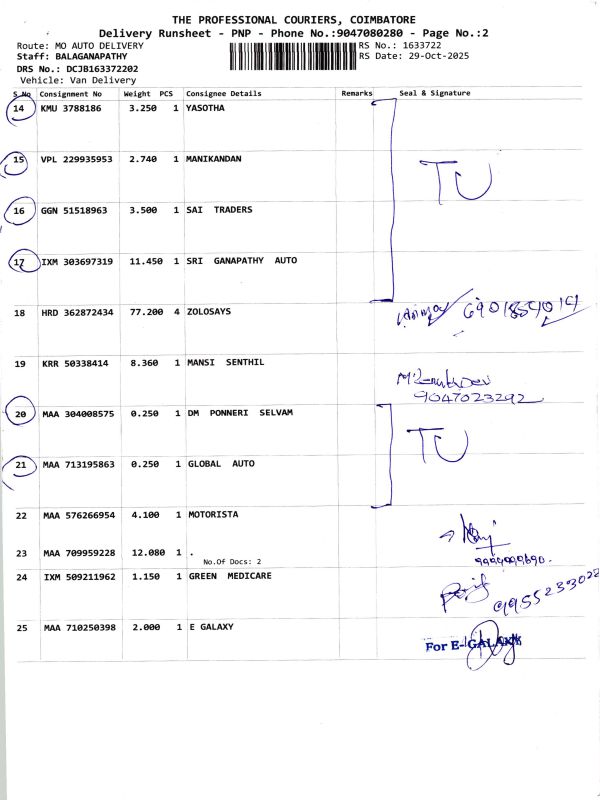 THE PROFESSIONAL COURIERS, COIMBATORE
Delivery Runsheet - PNP - Phone No.:9047080280 - Page No.:2
Route: MO AUTO DELIVERY RS No.: 1633722
Staff: BALAGANAPATHY RS Date: 29-Oct-2025
DRS No.: DCJB163372202
Vehicle: Van Delivery
S.No Consignment No Weight PCS Consignee Details Remarks Seal & Signature
14 KMU 3788186 3.250 1 YASOTHA
15 VPL 229935953 2.740 1 MANIKANDAN
TU
16 GGN 51518963 3.500 1 SAI TRADERS
17 IXM 303697319 11.450 1 SRI GANAPATHY AUTO
18 HRD 362872434 77.200 4 ZOLOSAYS
19 KRR 50338414 8.360 1 MANSI SENTHIL
9047023292
20 MAA 304008575 0.250 1 DM PONNERI SELVAM
TU
21 MAA 713195863 0.250 1 GLOBAL AUTO
22 MAA 576266954 4.100 1 MOTORISTA
23 MAA 709959228 12.080 1 .
No.Of Docs: 2
24 IXM 509211962 1.150 1 GREEN MEDICARE
25 MAA 710250398 2.000 1 E GALAXY
For E-GALAXY